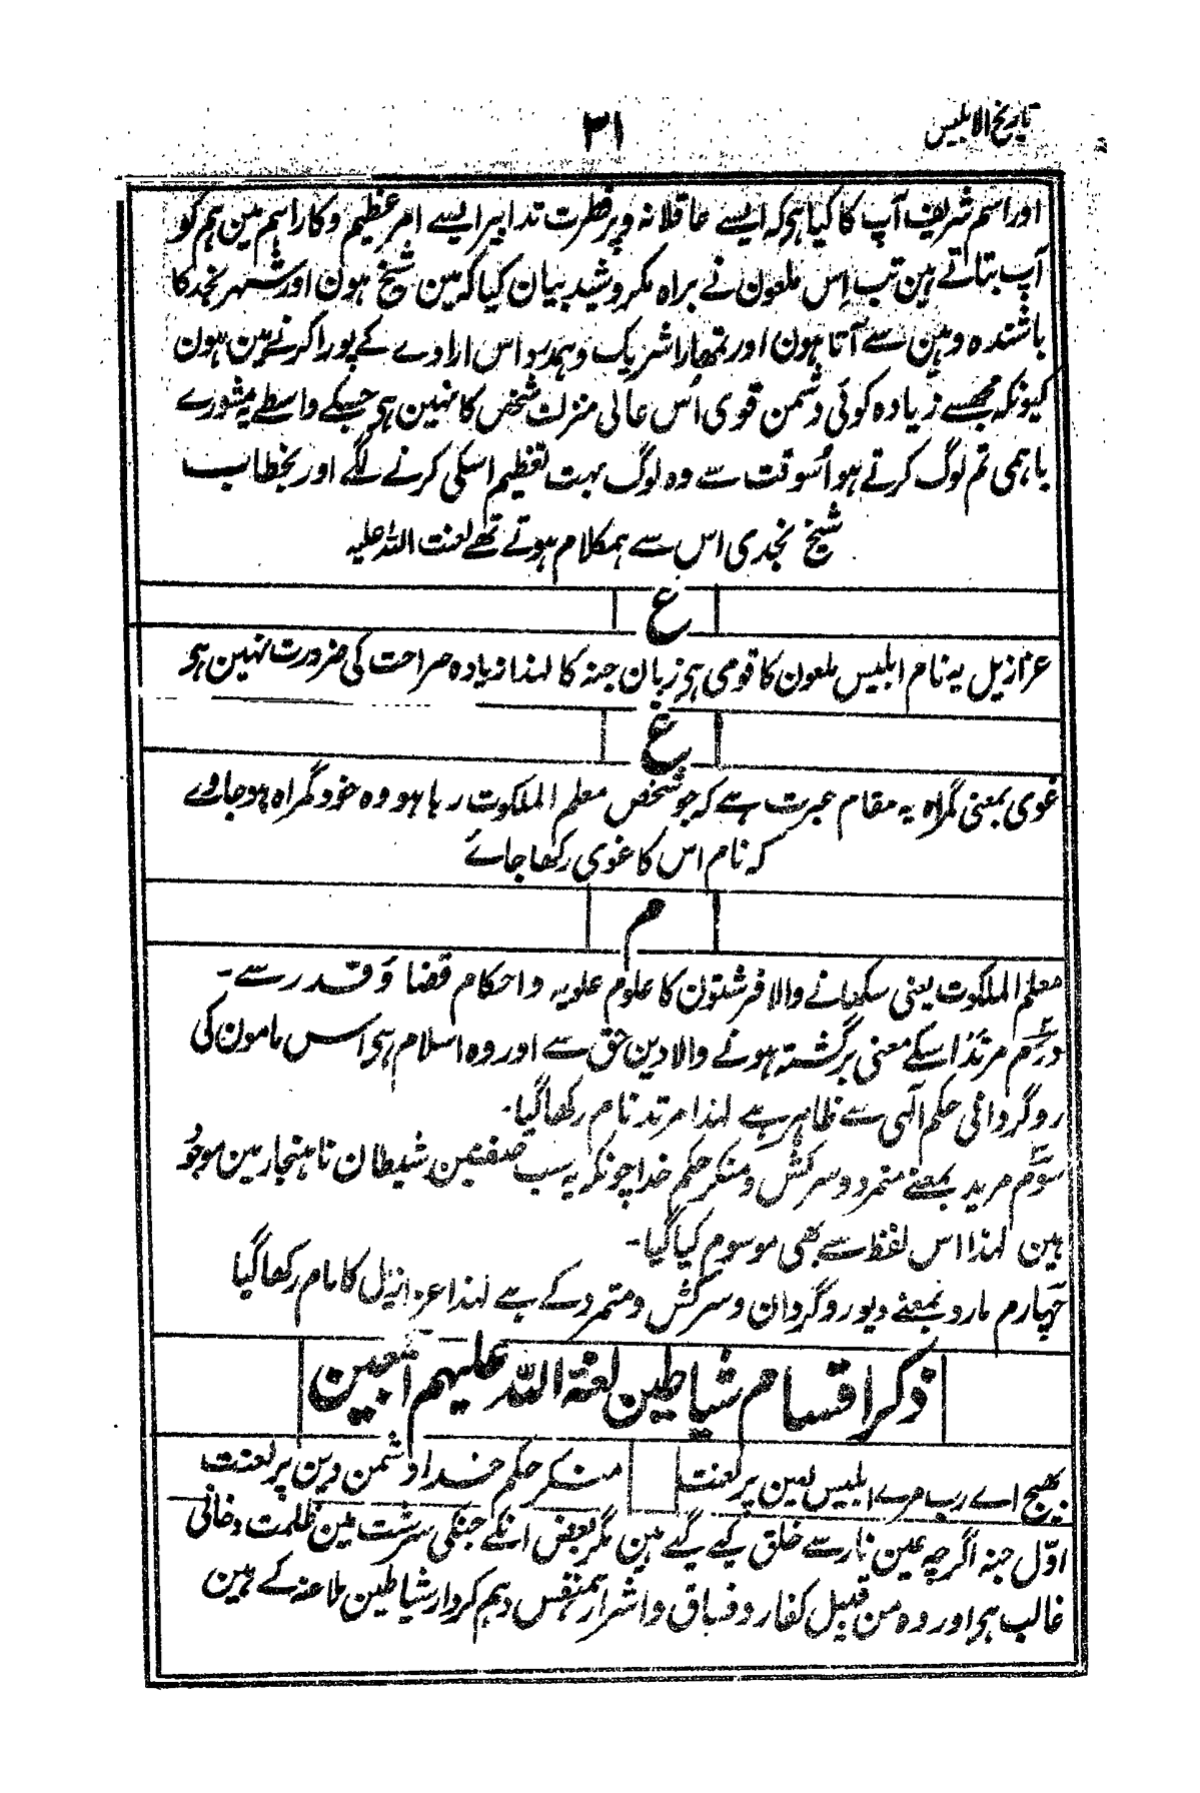 تاریخ الابلیس
۳۱
اور اسم شریف آپ کا کیا ہی کہ ایسے عاقلانہ و پر فطرت تدابیر ایسے امر عظیم و کار اہم مین ہم کو
آپ بتاتے ہین تب اِس ملعون نے براہ مکر و شید بیان کیا کہ مین شیخ ہون اور شہر نجد کا
باشندہ وہین سے آتا ہون اور تمھارا شریک و ہمدرد اس ارادے کے پورا کرنے مین ہون
کیونکہ مجھسے زیادہ کوئی دشمن قوی اُس عالی منزلت شخص کا نہین ہی جسکے واسطے یہ مشورے
باہمی تم لوگ کرتے ہو اُسوقت سے وہ لوگ بہت تعظیم اسکی کرنے لگے اور بخطاب
شیخ نجدی اس سے ہمکلام ہوتے تھے لعنت اللہ علیہ
ع
عزازیل یہ نام ابلیس ملعون کا قومی ہی زبان جنہ کا لہذا زیادہ صراحت کی ضرورت نہین ہی
غ
غوی بمعنی گمراہ یہ مقام عبرت ہے کہ جو شخص معلم الملکوت رہا ہو وہ خود گمراہ ہو جاوے
کہ نام اس کا غوی رکھا جائے
م
معلم الملکوت یعنی سکھانے والا فرشتون کا علوم علویہ و احکام قضا و قدر سے ۔
دوم مرتد اسکے معنی برگشتہ ہونے والا دین حق سے اور وہ اسلام ہی اس مامون کی
روگردانی حکم آلہی سے ظاہر ہے لہذا مرتد نام رکھا گیا ۔
سوم مرید بمعنے متمرد و سرکش و منکر حکم خدا چونکہ یہ سب صفتین شیطان ناہنجار مین موجود
ہین لہذا اس لفظ سے بھی موسوم کیا گیا ۔
چہارم مارد بمعنے دیو روگردان و سرکش و متمرد کے ہے لہذا عزازیل کا نام رکھا گیا
ذکر اقسام شیاطین لعنۃ اللہ علیہم اجمعین
بھیج اے رب مرے ابلیس لعین پر لعنت منکر حکم خدا دشمن دین پر لعنت
اوّل جنہ اگرچہ عین نار سے خلق کیے گیے ہین مگر بعض انکے جنکی سرشت مین ظلمت دخانی
غالب ہی اور وہ من قبیل کفار و فساق و اشرار ہمنفس و ہم کردار شیاطین ملاعنہ کے ہین